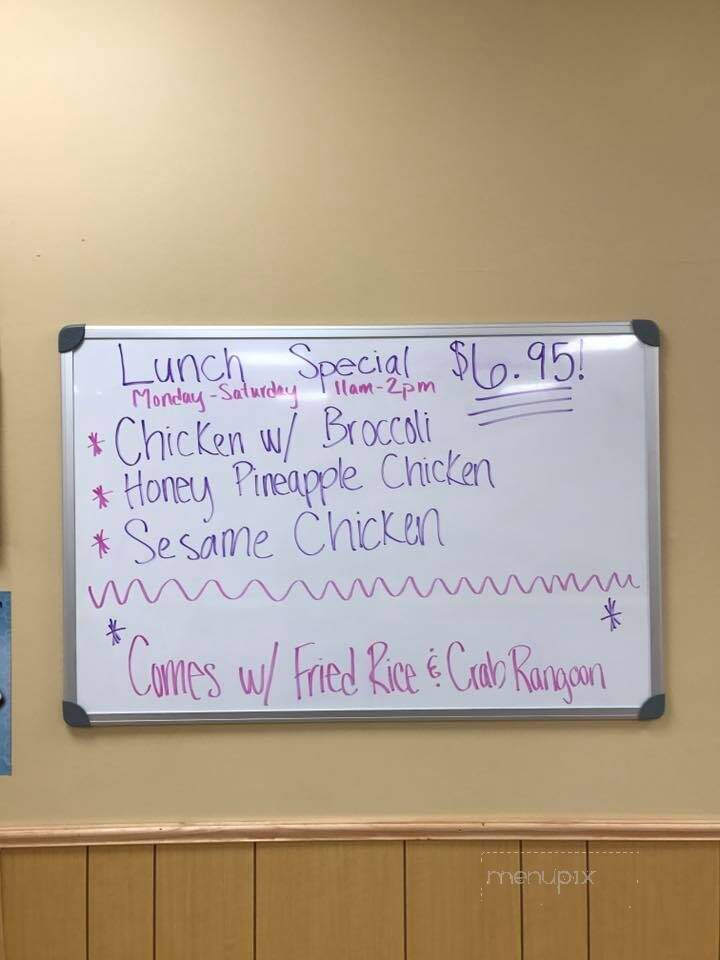 Lunch Special $6.95!
Monday-Saturday 11am-2pm
* Chicken w/ Broccoli
* Honey Pineapple Chicken
* Sesame Chicken
* *
Comes w/ Fried Rice & Crab Rangoon
menupix